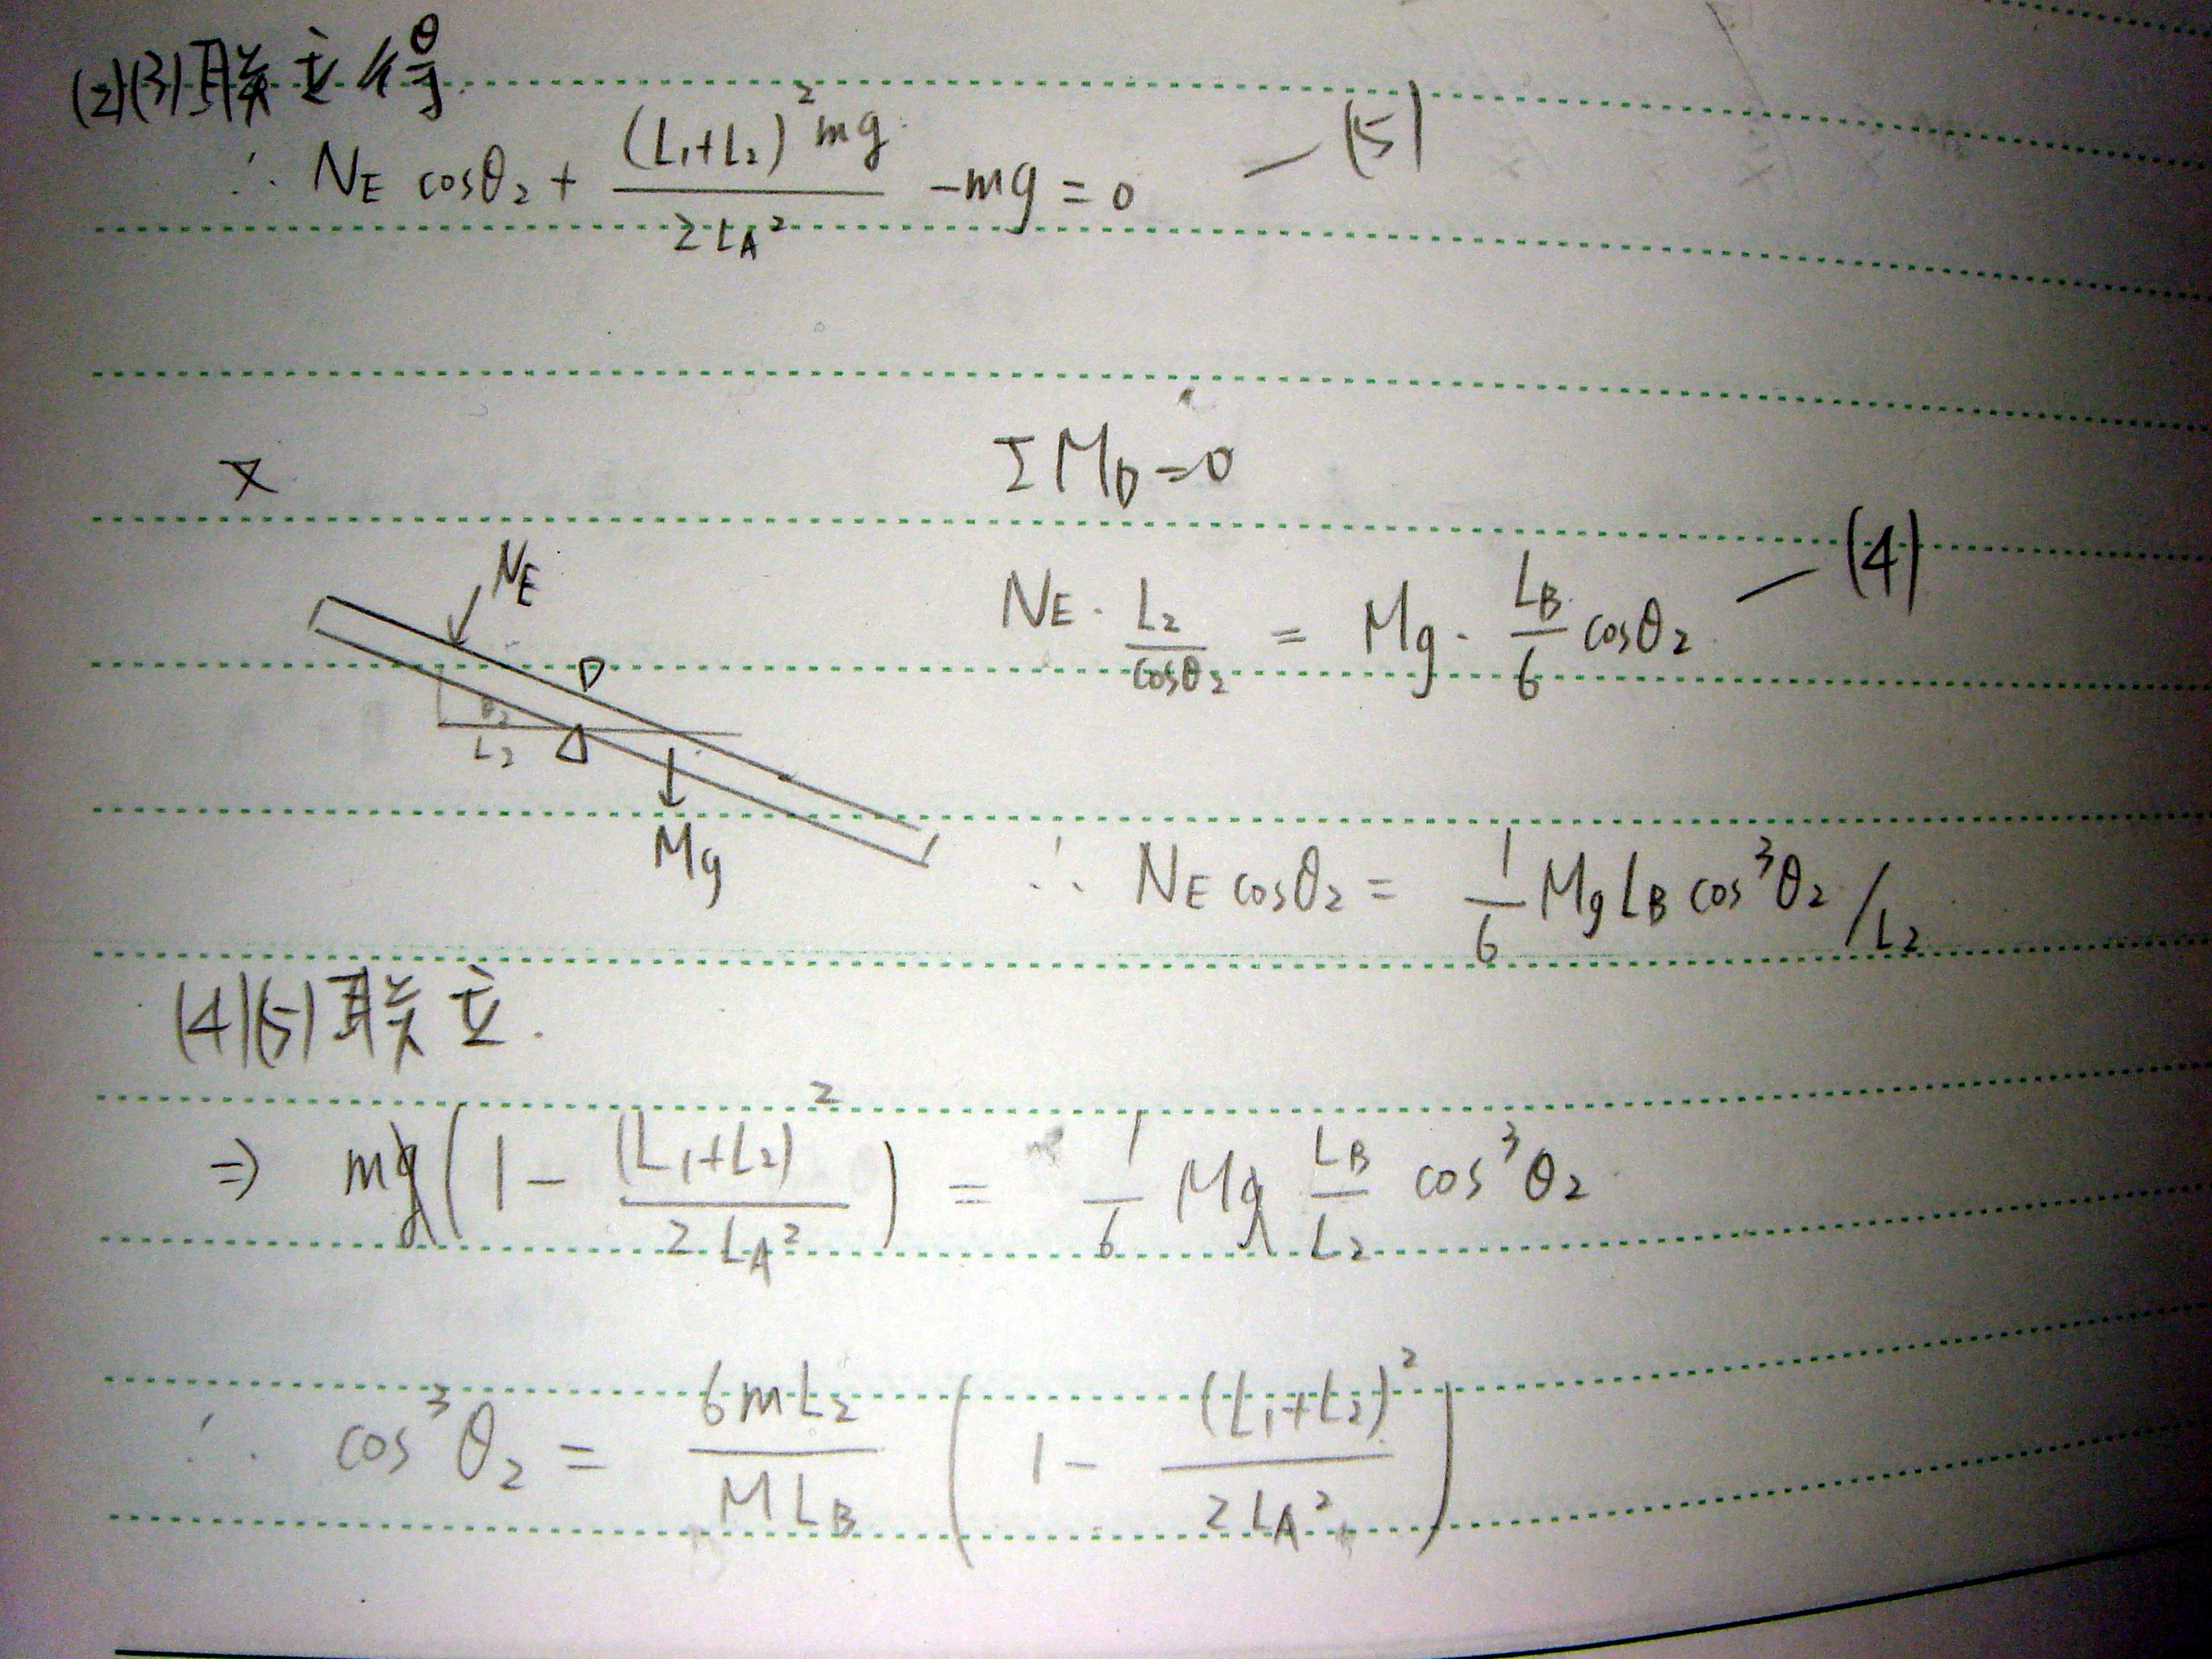 (2)(3)联立得
∴ N_E cosθ₂ + (L₁+L₂)²mg / 2L_A² - mg = 0 — (5)
ΣM_D = 0
N_E · L₂/cosθ₂ = Mg · L_B/6 cosθ₂ — (4)
N_E
D
θ₂
L₂
Mg
∴ N_E cosθ₂ = 1/6 Mg L_B cos³θ₂ / L₂
(4)(5)联立.
⇒ mg(1 - (L₁+L₂)² / 2L_A²) = 1/6 Mg L_B/L₂ cos³θ₂
∴ cos³θ₂ = 6mL₂ / ML_B (1 - (L₁+L₂)² / 2L_A²)